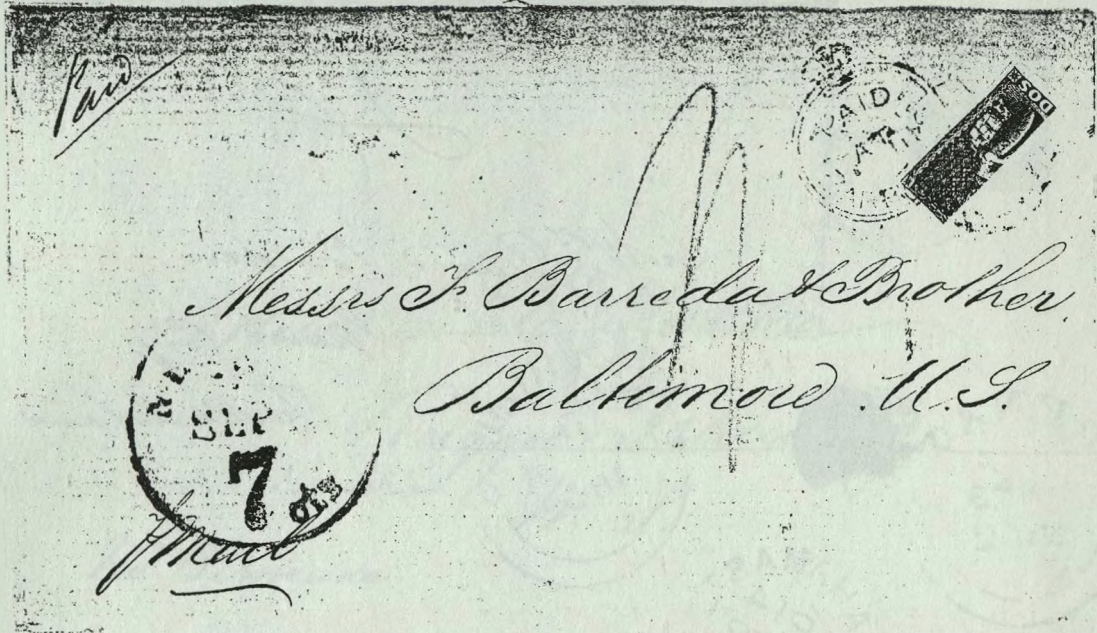 Paid
PAID
DOS
Messrs F. Barreda & Brother
Baltimore U.S.
SHIP
7
cts